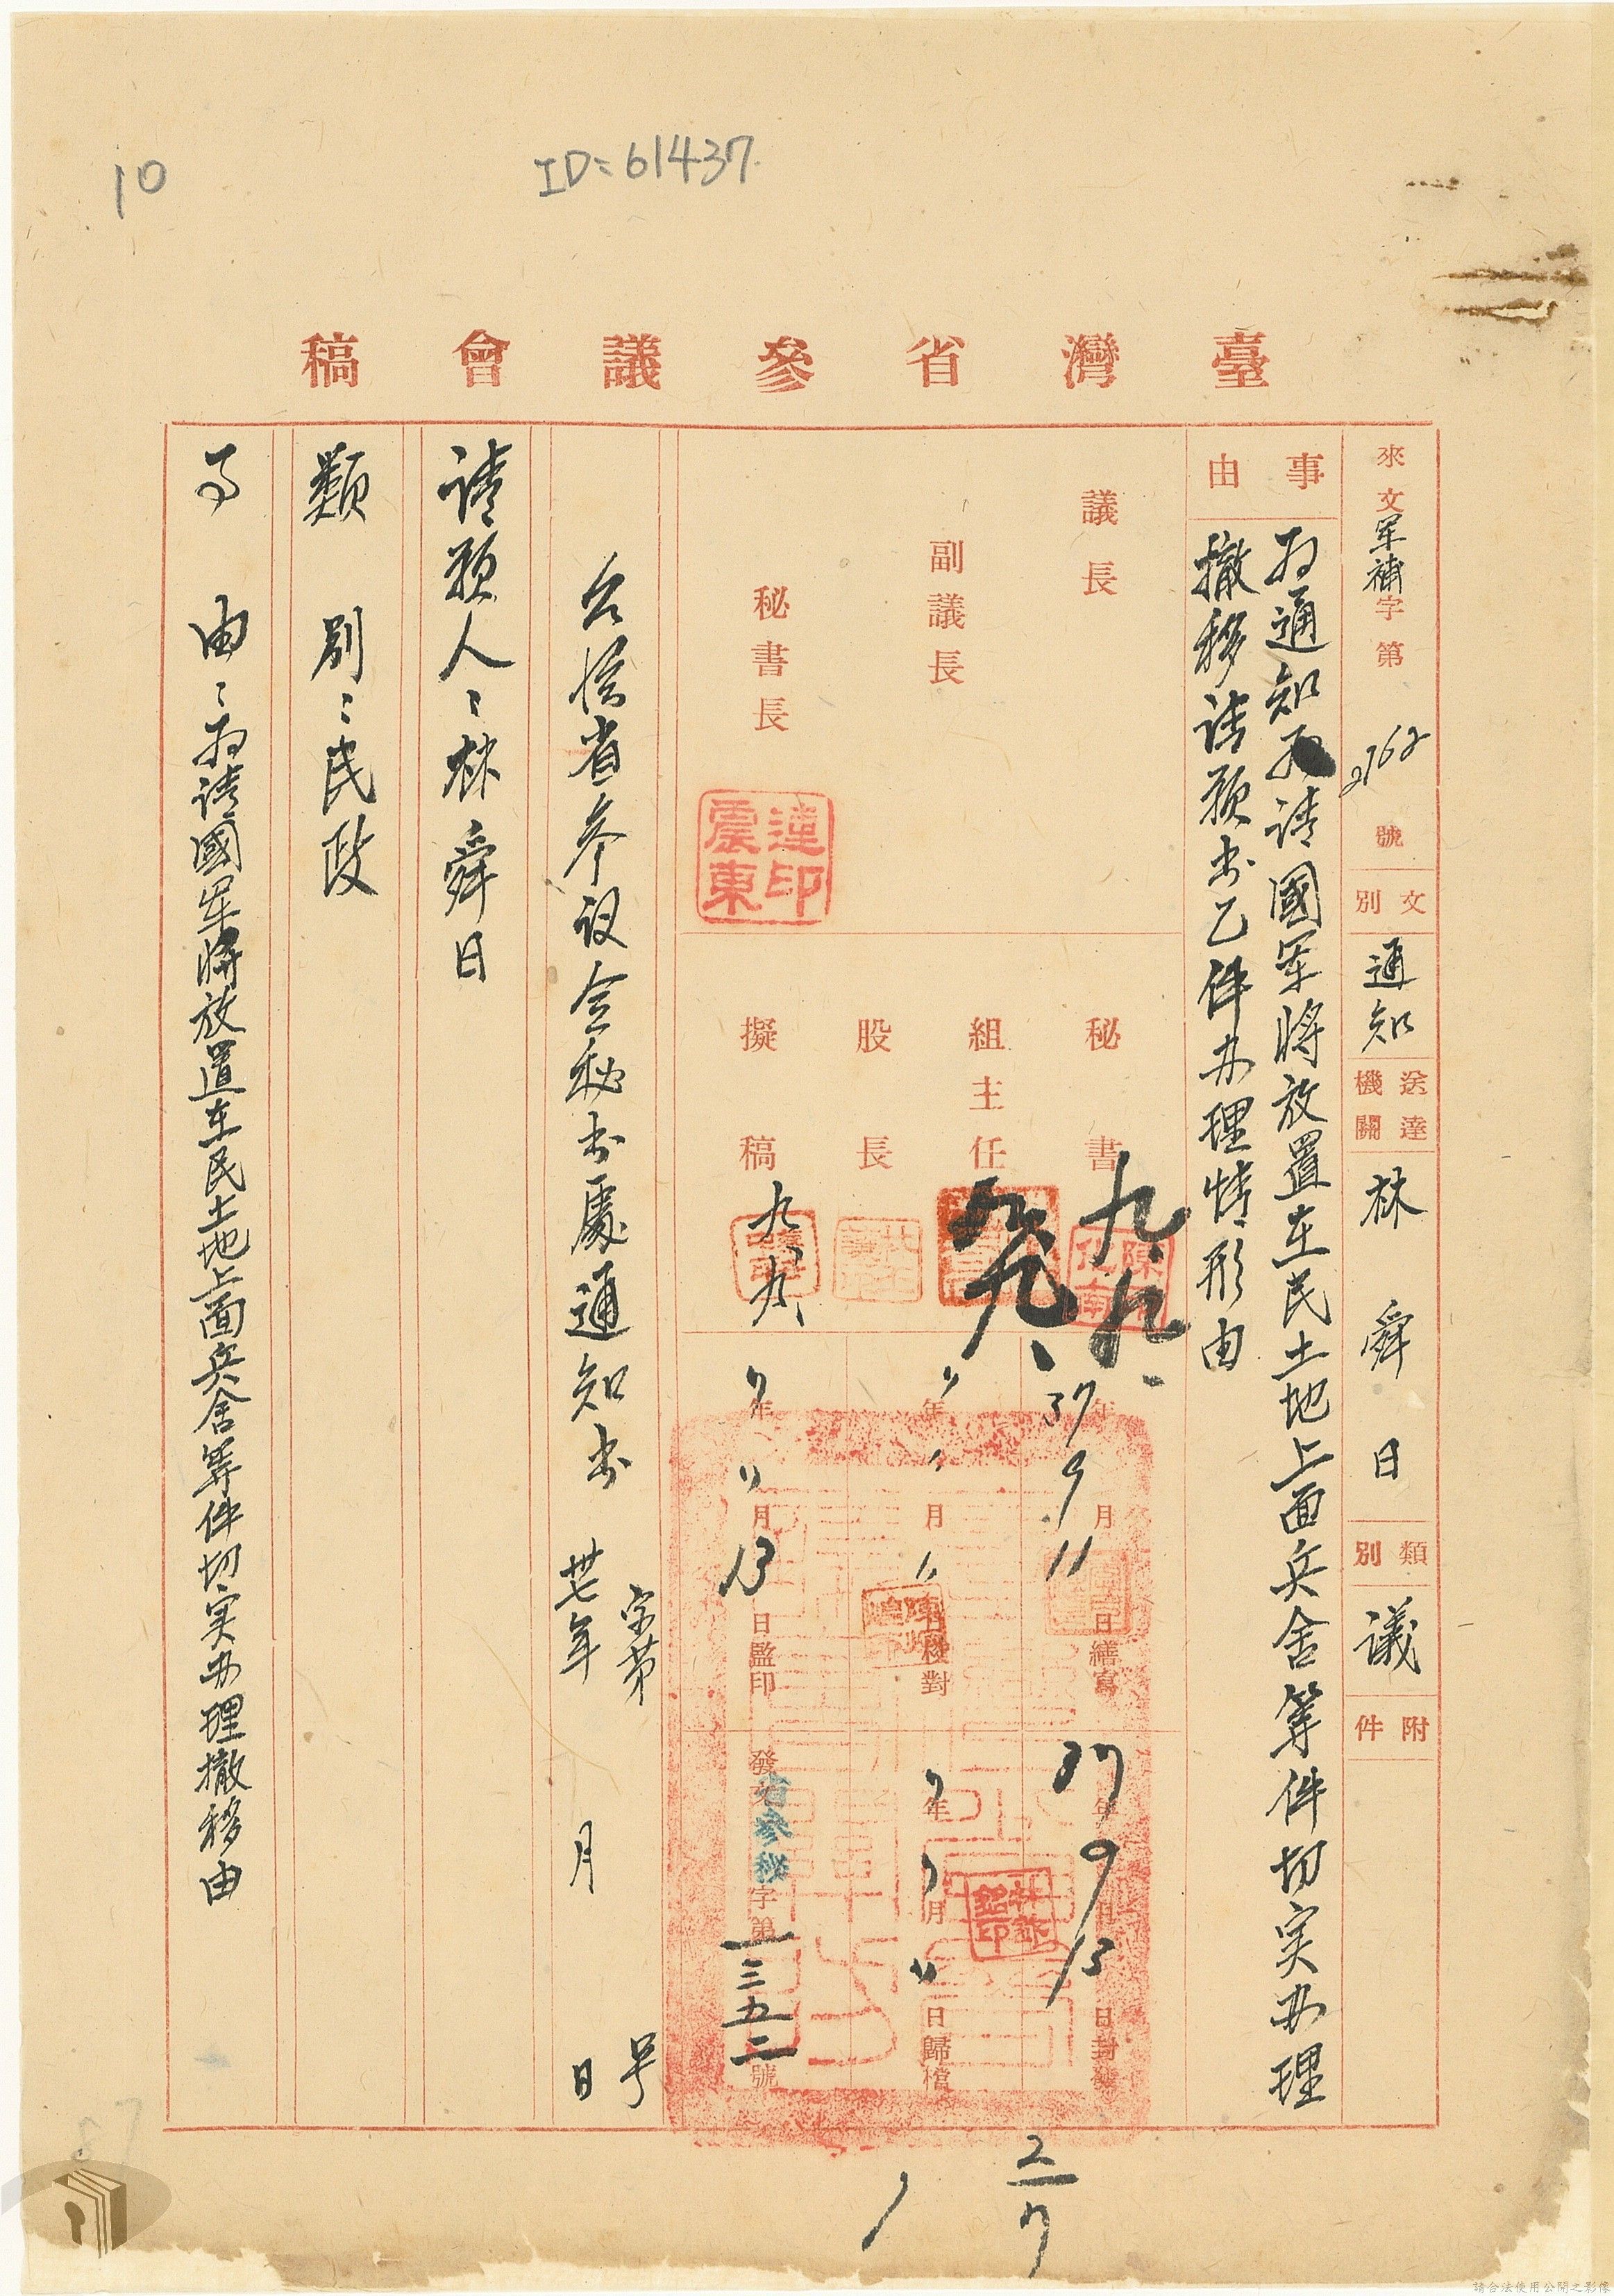 10
ID=61437
臺灣省參議會稿
來文軍補字第2762號
文別
通知
送達機關
林舜日
類別
議
附件
事由
為通知為請國軍將放置在民土地上面兵舍等件切实办理
撤移請願书乙件办理情形由
議長
副議長
秘書長
連震東印
秘書
九、九、
組主任
九、
股長
擬稿
九、八、
陳化南
37年9月11日繕寫
〃年〃月〃日校對
〃年〃月13日監印
37年9月13日封發
〃年〃月〃日歸檔
發文省參秘字第一三五二號
台湾省参议会秘书處通知书
字第 号
卅七年 月 日
請願人：林舜日
類別：民政
事由：為請國軍將放置在民土地上面兵舍等件切实办理撤移由
2/7
請合法使用公開之影像